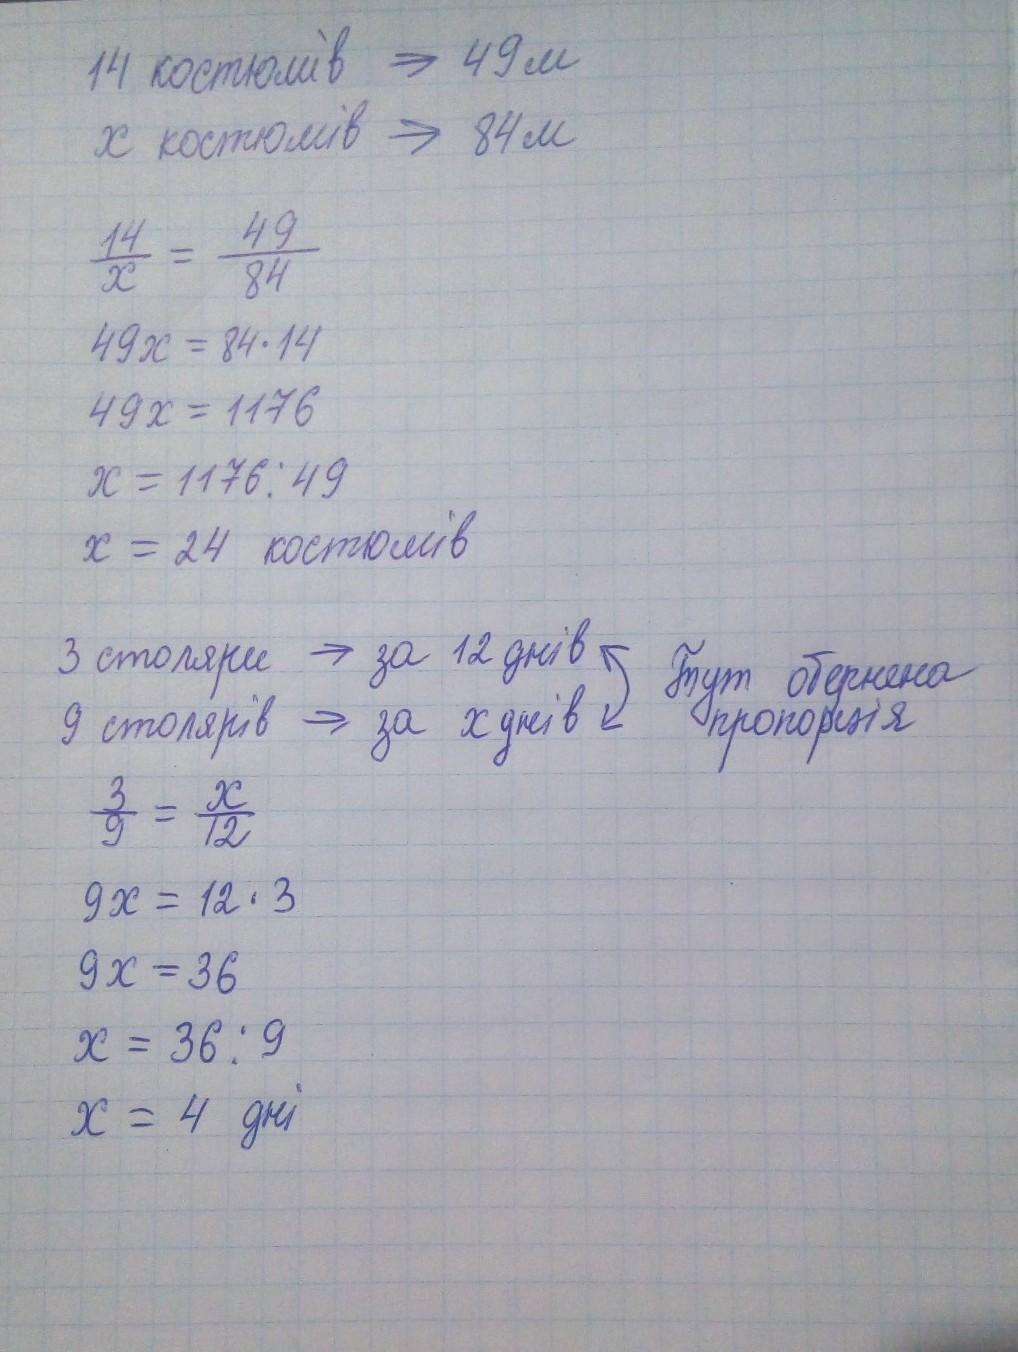 14 костюмів ⇒ 49м
х костюмів ⇒ 84м
14/х = 49/84
49х = 84·14
49х = 1176
х = 1176:49
х = 24 костюмів
3 столяри → за 12 днів
9 столярів → за х днів
Тут обернена
пропорція
3/9 = х/12
9х = 12·3
9х = 36
х = 36:9
х = 4 дні